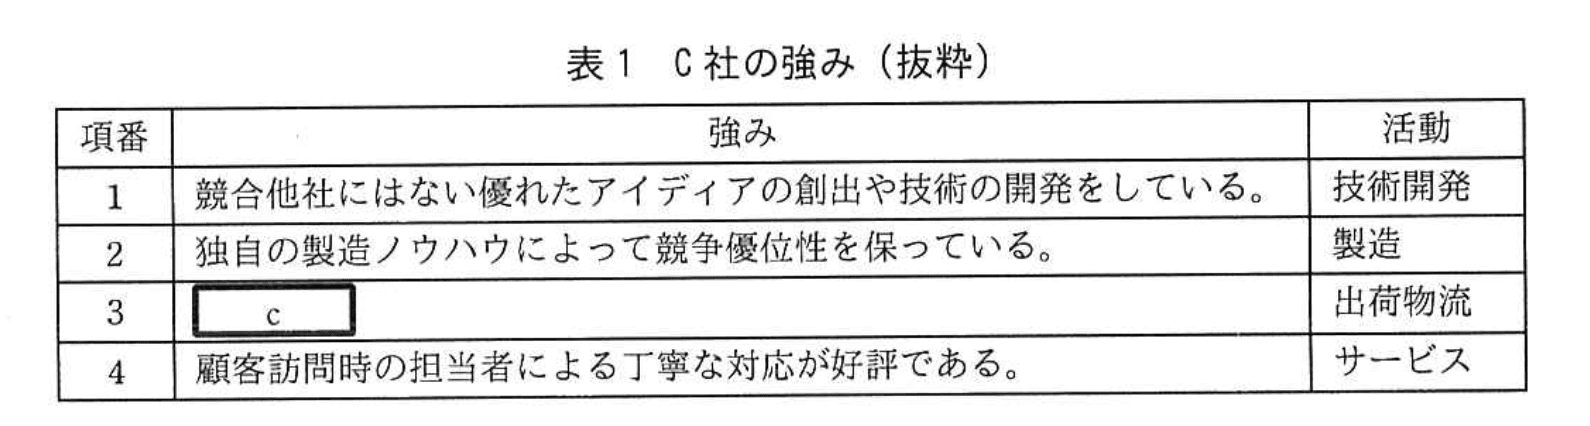 表1 C社の強み（抜粋）
項番 強み 活動
1 競合他社にはない優れたアイディアの創出や技術の開発をしている。 技術開発
2 独自の製造ノウハウによって競争優位性を保っている。 製造
3 c 出荷物流
4 顧客訪問時の担当者による丁寧な対応が好評である。 サービス